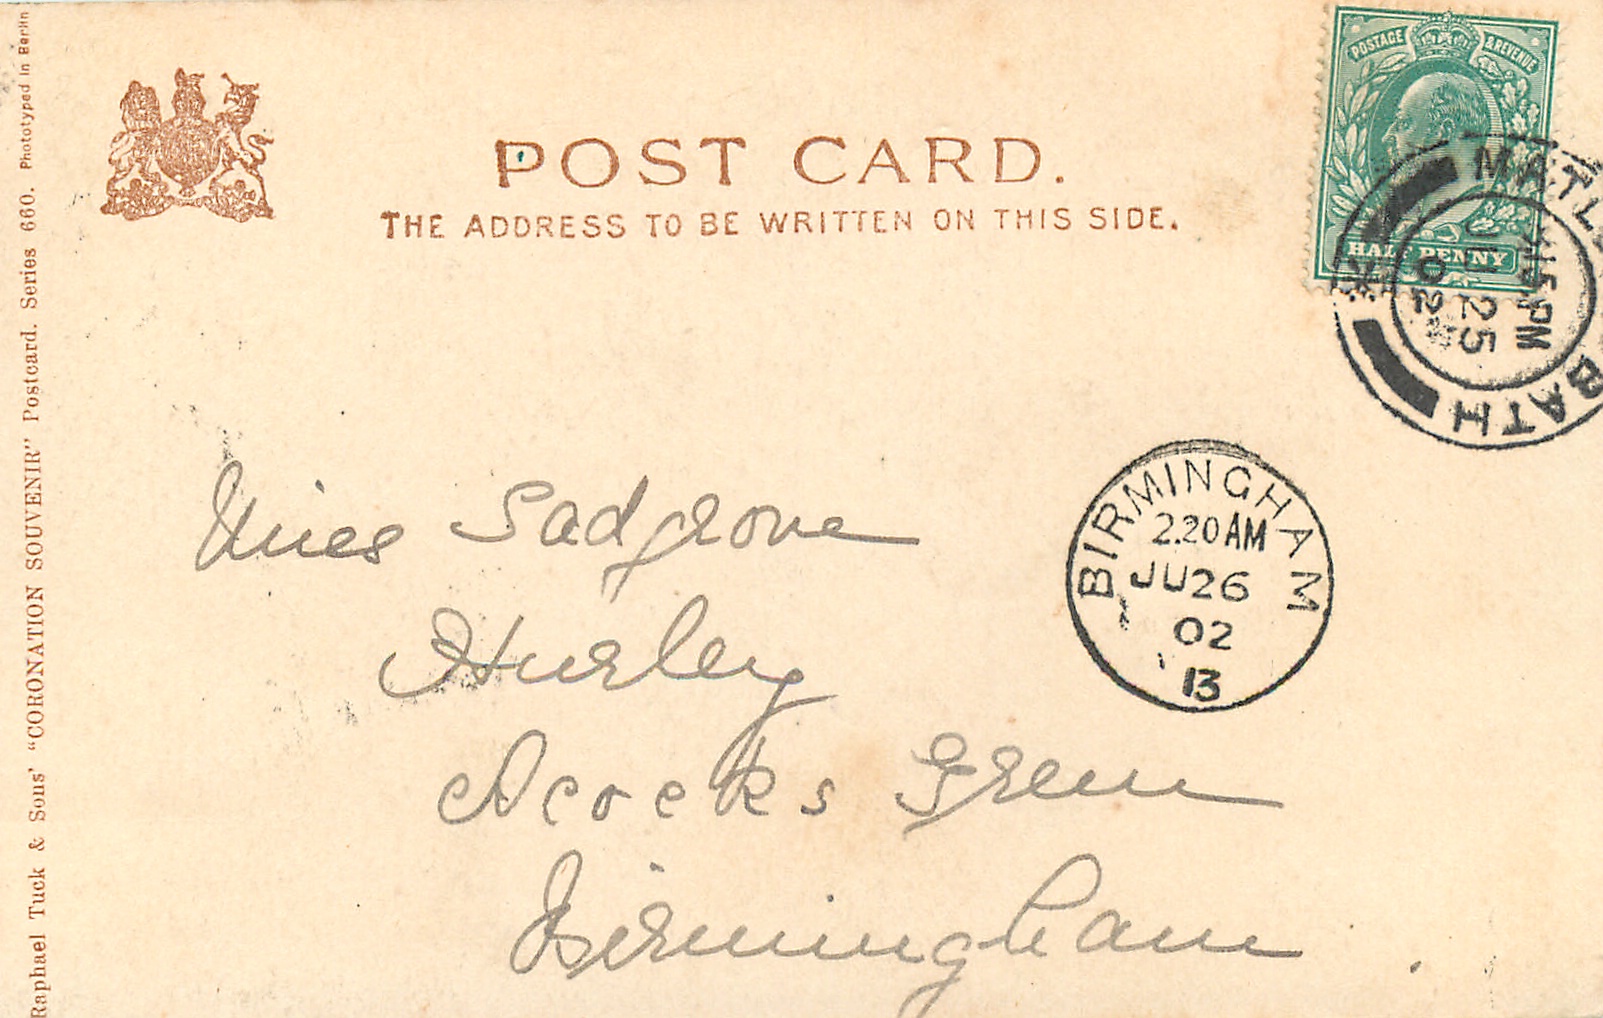 POST CARD.
THE ADDRESS TO BE WRITTEN ON THIS SIDE.
POSTAGE & REVENUE
HALF PENNY
MATL
BATH
15PM
JU 25
02
BIRMINGHAM
2.20AM
JU26
02
13
Miss Sadgrove
Hurley
Acocks Green
Birmingham
Raphael Tuck & Sons' "CORONATION SOUVENIR" Postcard. Series 660. Phototyped in Berlin